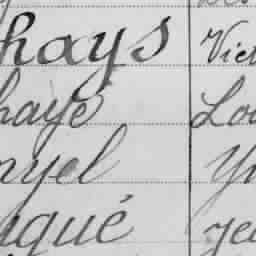 hays Vict
haye Lou
nyel Yv
aqué Jea